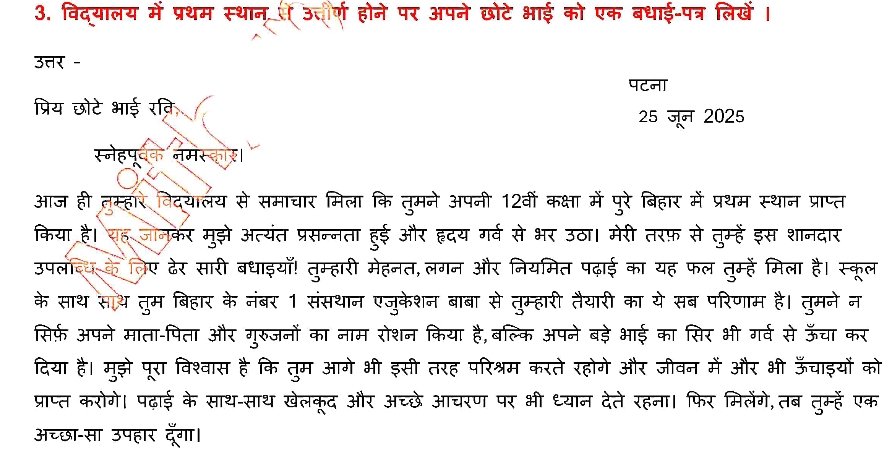 3. विद्यालय में प्रथम स्थान से उत्तीर्ण होने पर अपने छोटे भाई को एक बधाई-पत्र लिखें ।
उत्तर -
पटना
प्रिय छोटे भाई रवि,
25 जून 2025
स्नेहपूर्वक नमस्कार।
आज ही तुम्हारे विद्यालय से समाचार मिला कि तुमने अपनी 12वीं कक्षा में पुरे बिहार में प्रथम स्थान प्राप्त
किया है। यह जानकर मुझे अत्यंत प्रसन्नता हुई और हृदय गर्व से भर उठा। मेरी तरफ़ से तुम्हें इस शानदार
उपलब्धि के लिए ढेर सारी बधाइयाँ! तुम्हारी मेहनत, लगन और नियमित पढ़ाई का यह फल तुम्हें मिला है। स्कूल
के साथ साथ तुम बिहार के नंबर 1 संसथान एजुकेशन बाबा से तुम्हारी तैयारी का ये सब परिणाम है। तुमने न
सिर्फ़ अपने माता-पिता और गुरुजनों का नाम रोशन किया है, बल्कि अपने बड़े भाई का सिर भी गर्व से ऊँचा कर
दिया है। मुझे पूरा विश्वास है कि तुम आगे भी इसी तरह परिश्रम करते रहोगे और जीवन में और भी ऊँचाइयों को
प्राप्त करोगे। पढ़ाई के साथ-साथ खेलकूद और अच्छे आचरण पर भी ध्यान देते रहना। फिर मिलेंगे, तब तुम्हें एक
अच्छा-सा उपहार दूँगा।